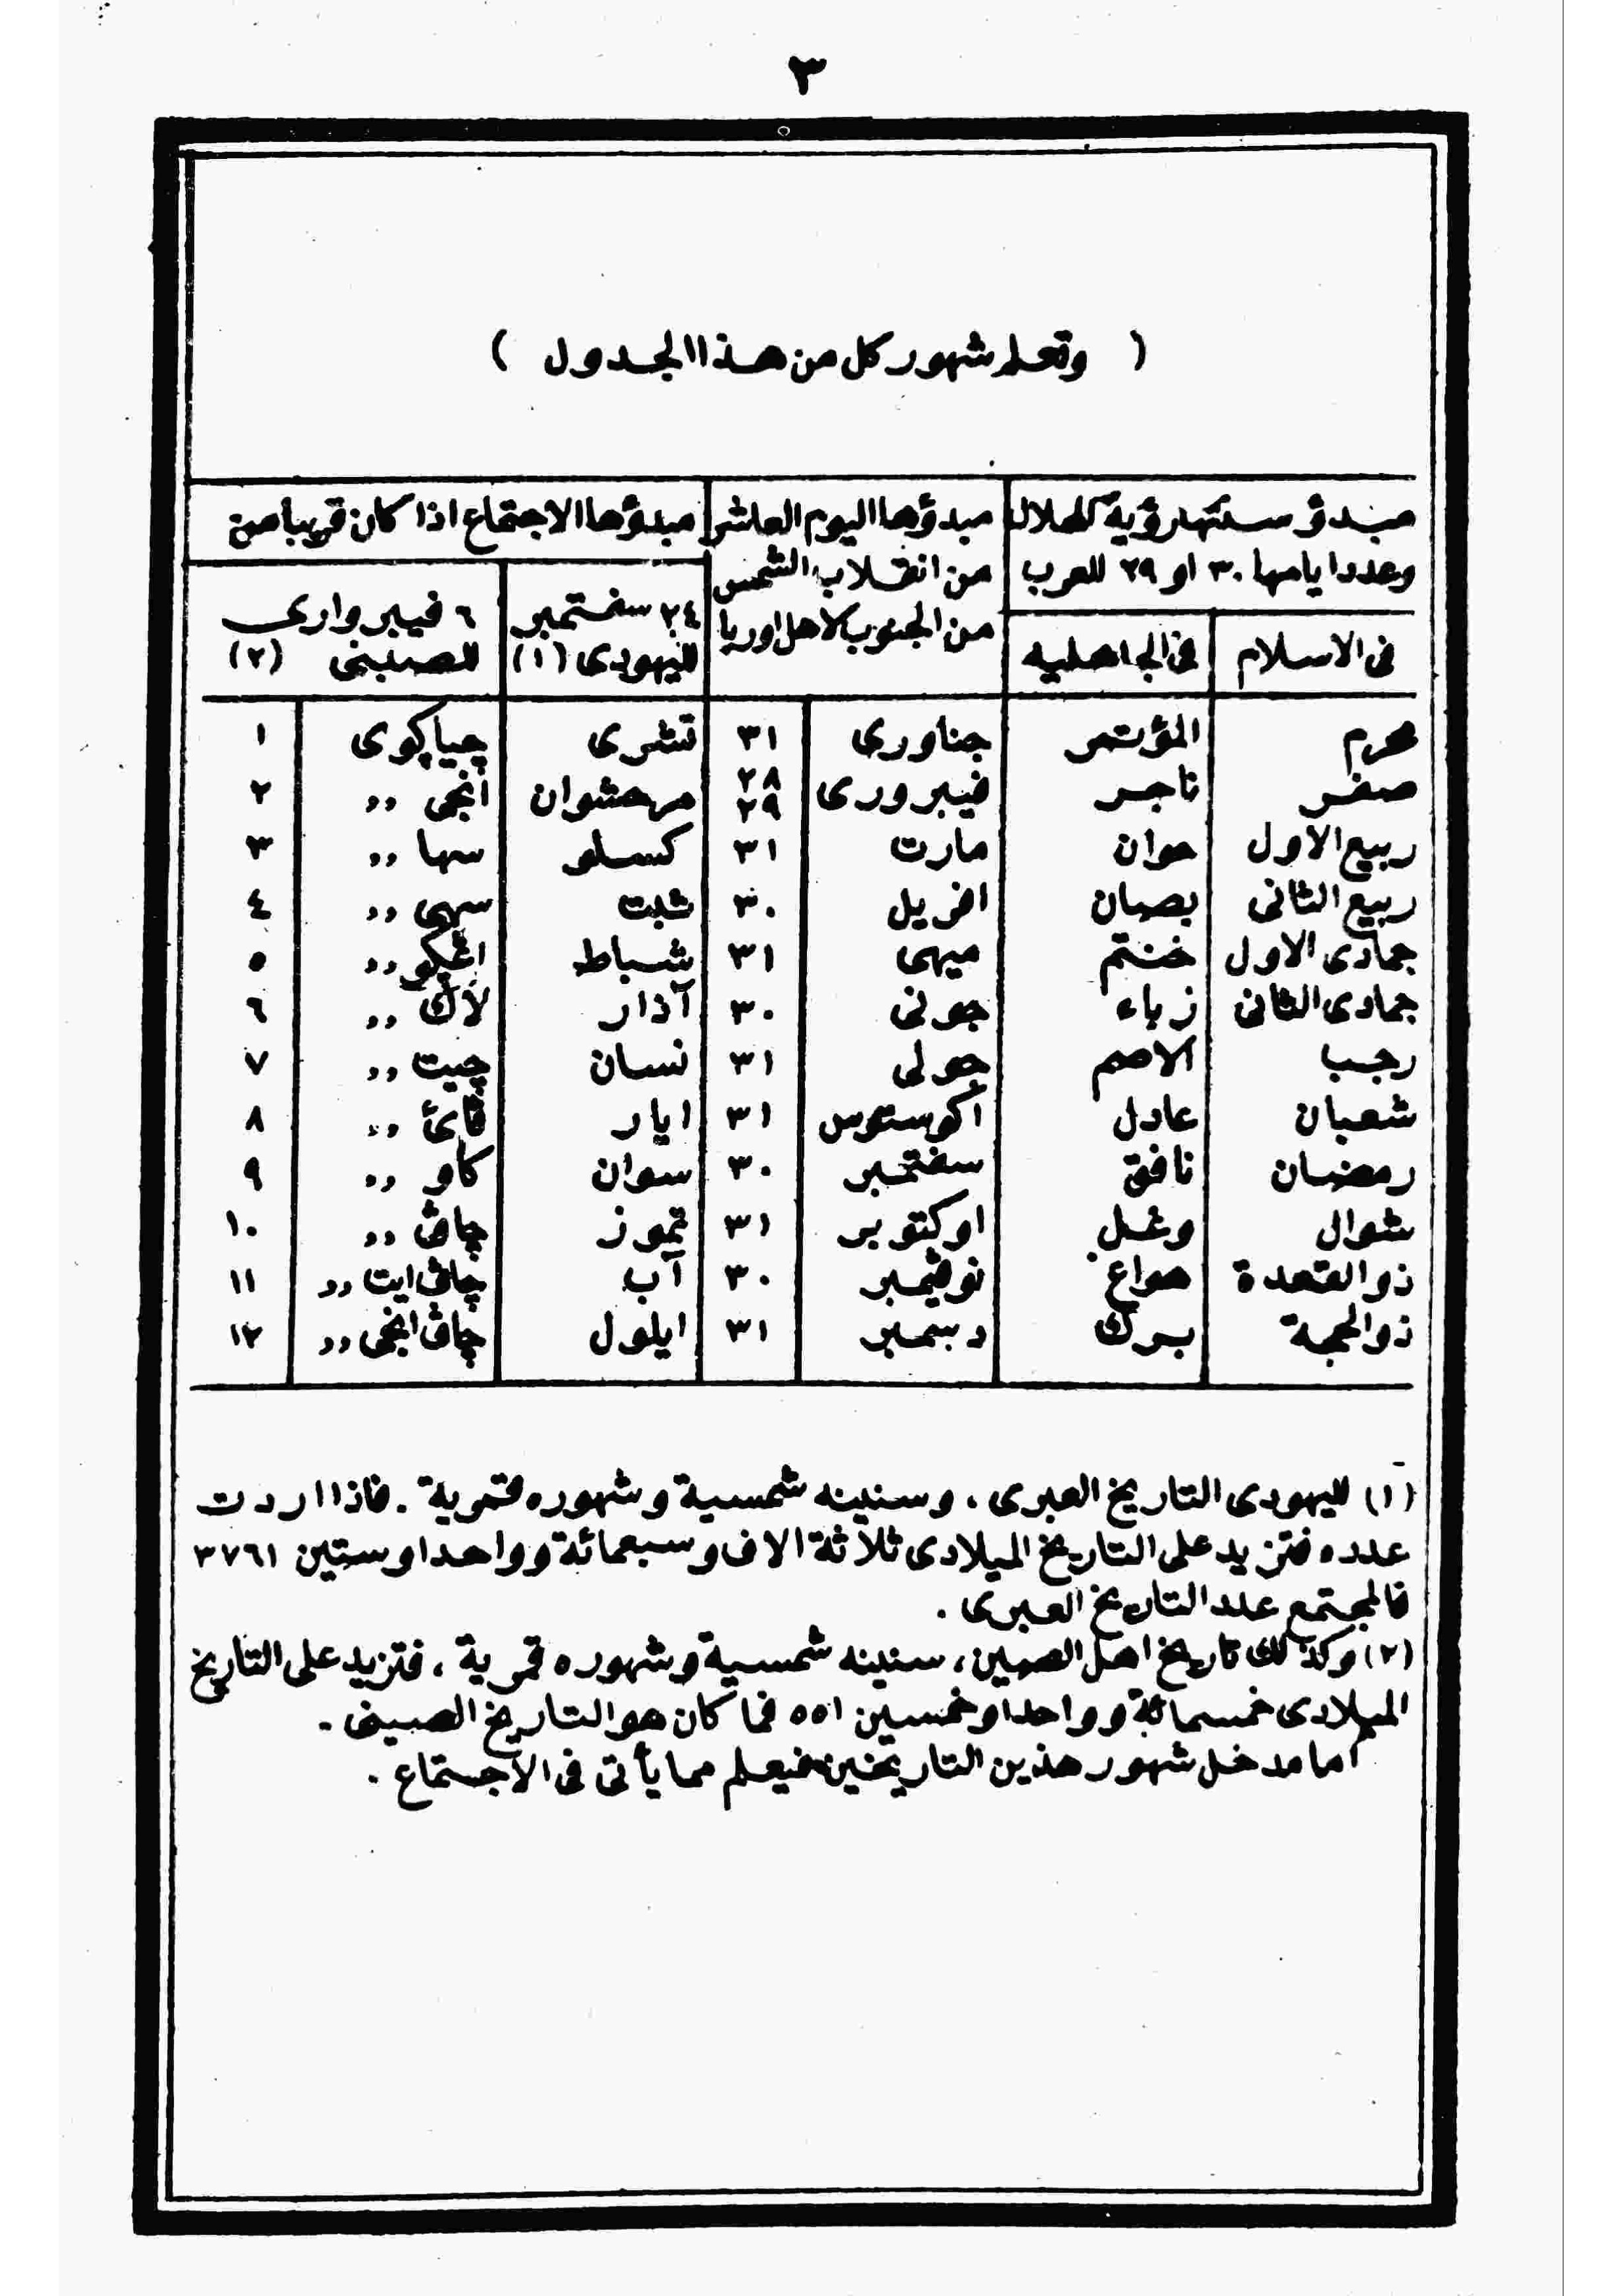 ٣
( وتعلم شهور كل من هذا الجدول )
مبدؤ سنتها رؤية الهلال
وعدد ايامها ٣٠ او ٢٩ للعرب
فى الاسلام
فى الجاهلية
مبدؤها اليوم العاشر
من انقلاب الشمس
من الجنوب لاهل اوربا
مبدؤها الاجتماع اذا كان قريبا من
٢٤ سفتمبر
لليهودى (١)
٦ فيبروارى
للصينى (٢)
محرم المؤتمر جناورى ٣١ تشرى چياكوى ١
صفر ناجر فيبرورى ٢٨ ٢٩ مرحشوان انجى ,, ٢
ربيع الاول حوان مارت ٣١ كسلو سها ,, ٣
ربيع الثانى بصبان افريل ٣٠ سهى ,, ٤
جمادى الاول خنتم ميهى ٣١ شباط ,, ٥
جمادى الثانى زباء جونى ٣٠ آذار لاك ,, ٦
رجب الاصم جولى ٣١ نسان چيت ,, ٧
شعبان عادل اكوستوس ٣١ ايار ,, ٨
رمضان نافق سفتمبر ٣٠ سوان كاو ,, ٩
شوال وغل اوكتوبر ٣١ تموز چاڤ ,, ١٠
ذو القعدة هواع نوڤيمبر ٣٠ آب چاڤ ايت ,, ١١
ذو الحجة برك دسمبر ٣١ ايلول چاڤ انجى ,, ١٢
(١) لليهودى التاريخ العبرى ، وسنينه شمسية وشهوره قمرية . فاذا اردت
عدده فتزيد على التاريخ الميلادى ثلاثة الاف وسبعمائة وواحدا وستين ٣٧٦١
فالمجتمع عدد التاريخ العبرى .
(٢) وكذلك تاريخ اهل الصين ، سنينه شمسية وشهوره قمرية ، فتزيد على التاريخ
الميلادى خمسمائة وواحدا وخمسين ٥٥١ فما كان هو التاريخ الصينى .
اما مدخل شهور هذين التاريخين فيعلم مما يأتى فى الاجتماع .